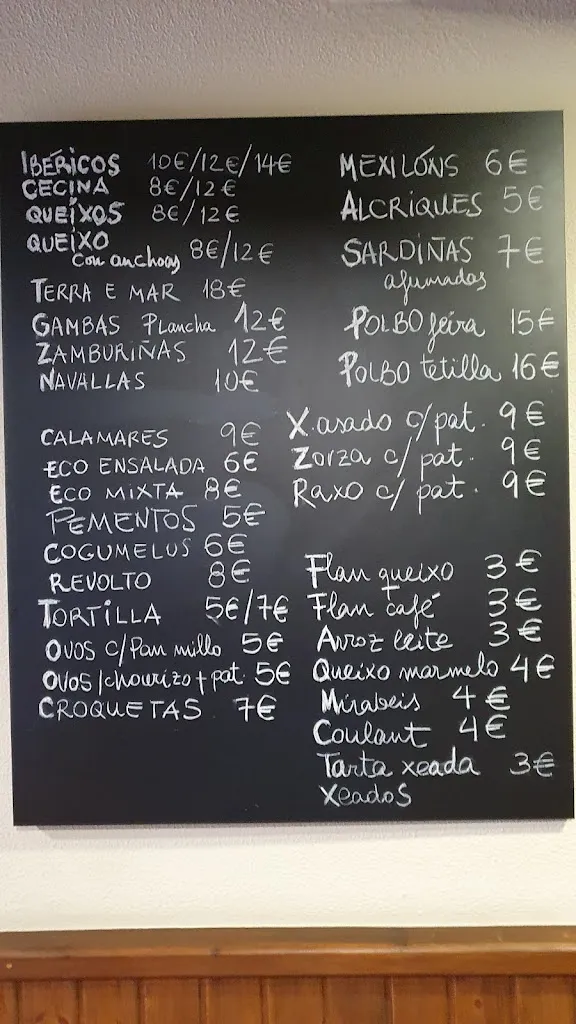 IBÉRICOS 10€/12€/14€
CECINA 8€/12€
QUEIXOS 8€/12€
QUEIXO
con anchoas 8€/12€
TERRA E MAR 18€
GAMBAS Plancha 12€
ZAMBURIÑAS 12€
NAVALLAS 10€
CALAMARES 9€
ECO ENSALADA 6€
ECO MIXTA 8€
PEMENTOS 5€
COGUMELUS 6€
REVOLTO 8€
TORTILLA 5€/7€
OVOS c/Pan millo 5€
OVOS/chourizo + pat. 5€
CROQUETAS 7€
MEXILÓNS 6€
ALCRIQUES 5€
SARDIÑAS 7€
afumadas
POLBO feira 15€
POLBO tetilla 16€
X. asado c/pat. 9€
Zorza c/pat. 9€
Raxo c/pat. 9€
Flan queixo 3€
Flan café 3€
Arroz leite 3€
Queixo marmelo 4€
Mirabeis 4€
Coulant 4€
Tarta xeada 3€
XeadoS